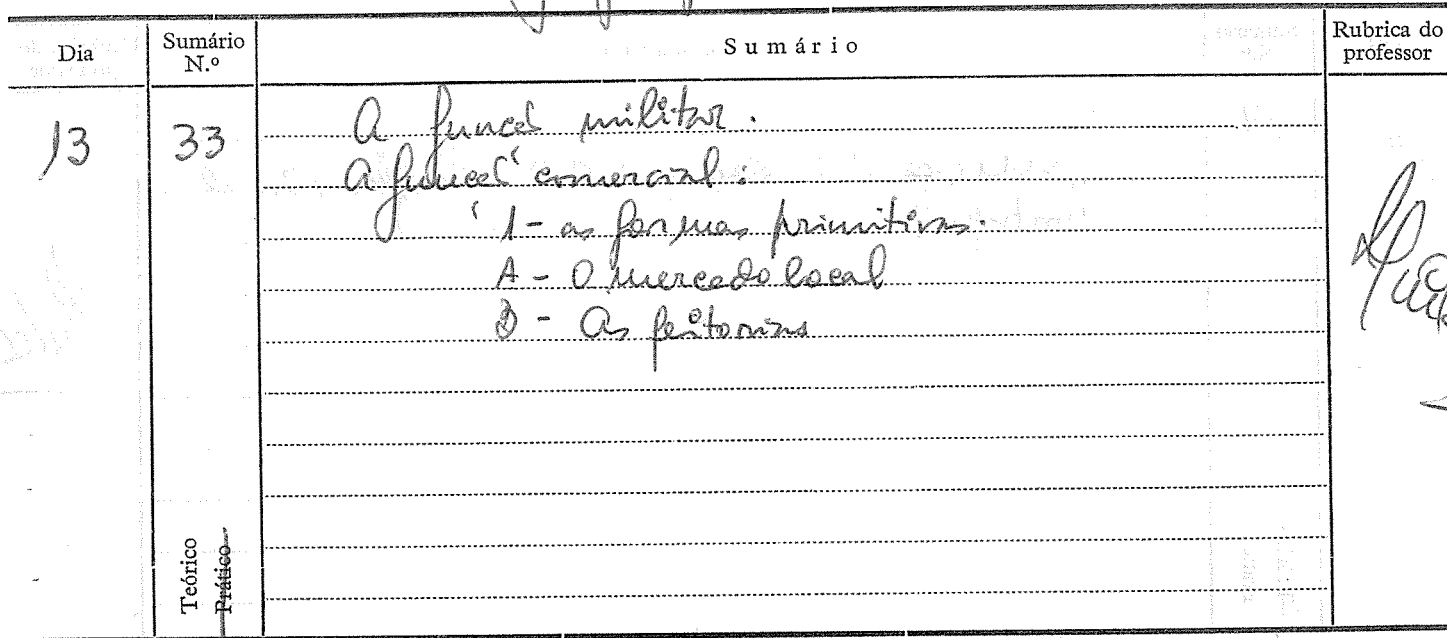 Dia
Sumário N.º
Sumário
Rubrica do professor
13
33
A função militar.
A função comercial:
1 - as formas primitivas.
A - O mercado local
B - As feitorias
Teórico
Prático